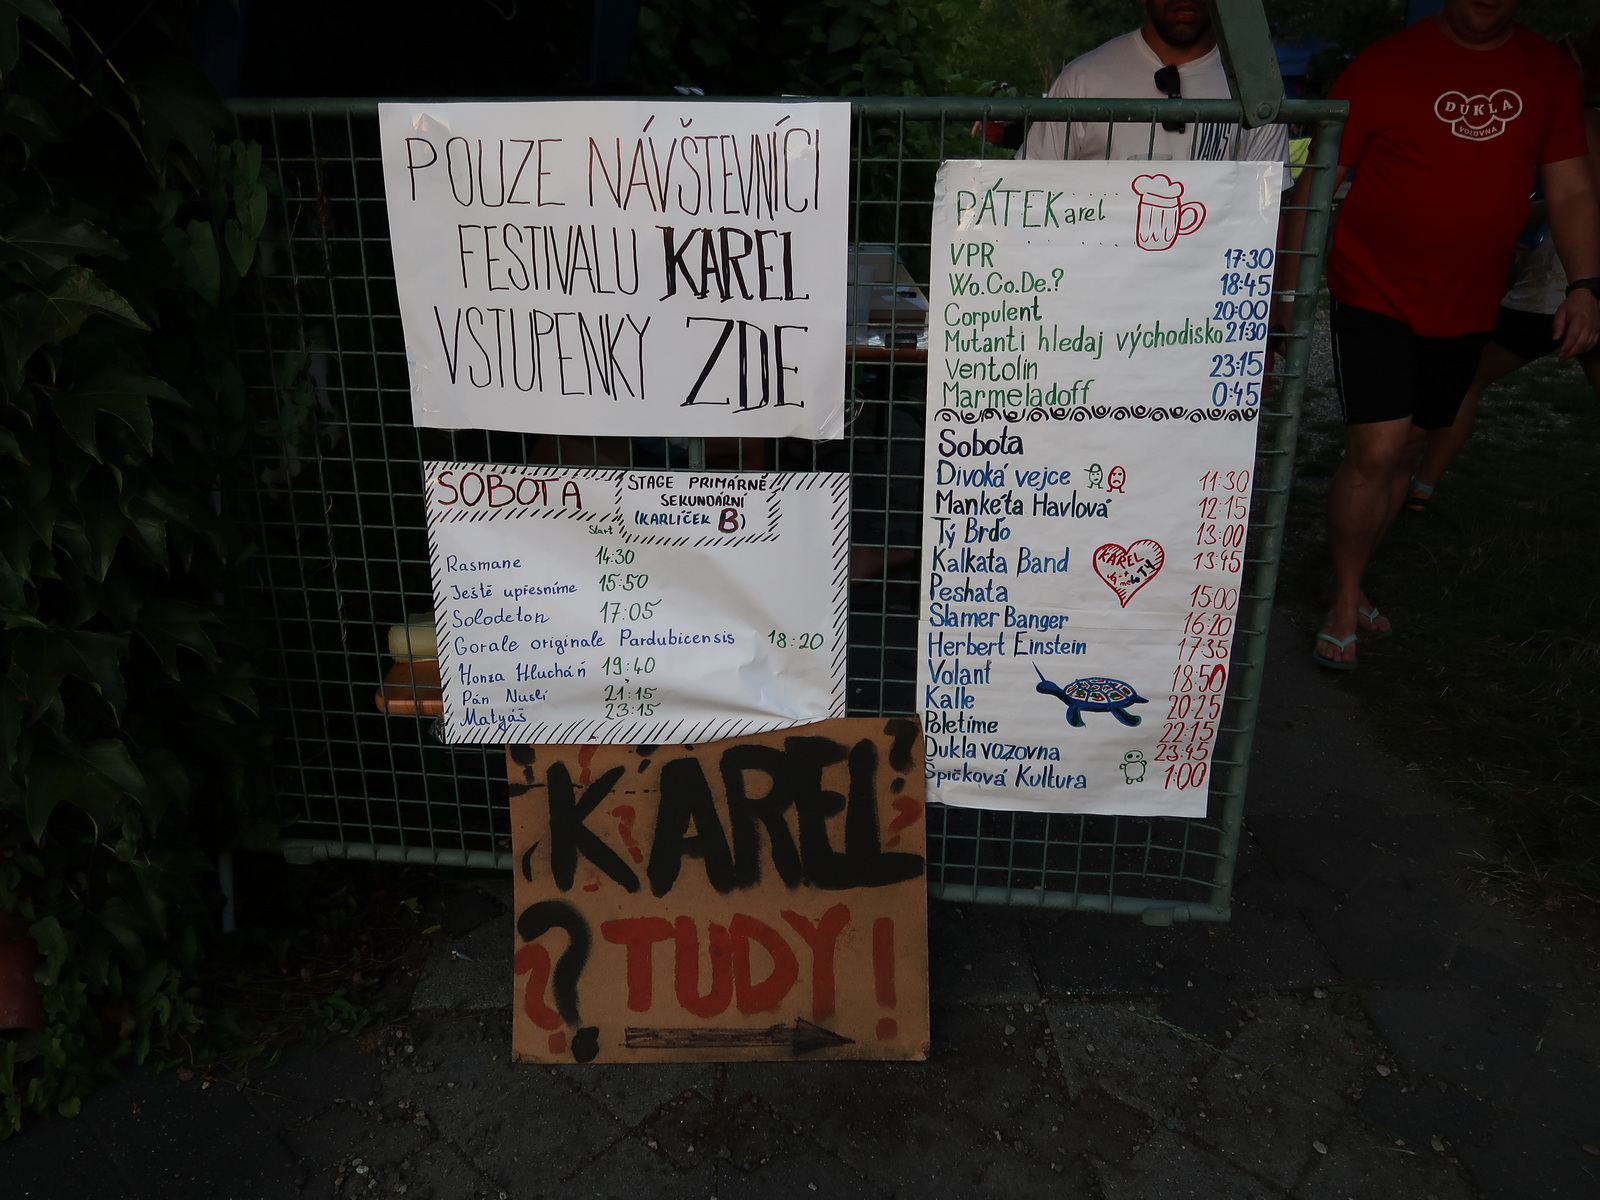 POUZE NÁVŠTEVNÍCI
FESTIVALU KAREL
VSTUPENKY ZDE
SOBOTA
STAGE PRIMÁRNĚ
SEKUNDÁRNÍ
(KARLÍČEK B)
Start
Rasmane 14:30
Ještě upřesníme 15:50
Solodeton 17:05
Gorale originale Pardubicensis 18:20
Honza Hlucháň 19:40
Pán Nuslí 21:15
Matyáš 23:15
KAREL
? TUDY!
PÁTEKarel
VPR 17:30
Wo.Co.De.? 18:45
Corpulent 20:00
Mutanti hledaj východisko 21:30
Ventolin 23:15
Marmeladoff 0:45
Sobota
Divoká vejce 11:30
Mankéta Havlová 12:15
Tý Brďo 13:00
Kalkata Band 13:45
KAREL
TY
Peshata 15:00
Slamer Banger 16:20
Herbert Einstein 17:35
Volant 18:50
Kalle 20:25
Poletíme 22:15
Dukla vozovna 23:45
Špičková Kultura 1:00
VANS
DUKLA
VOZOVNA